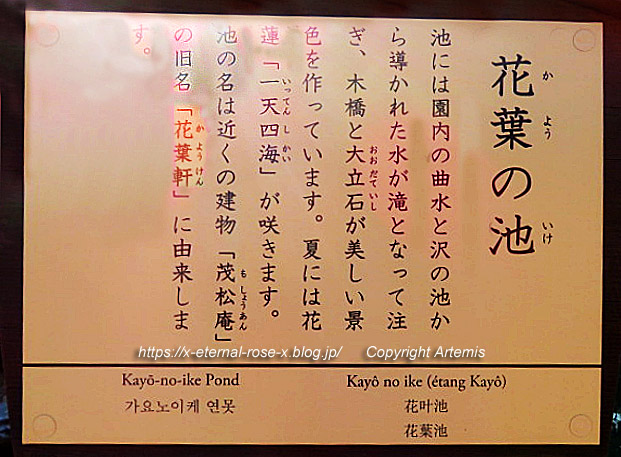 花葉の池
かようのいけ
池には園内の曲水と沢の池か
ら導かれた水が滝となって注
ぎ、木橋と大立石が美しい景
おおだていし
色を作っています。夏には花
蓮「一天四海」が咲きます。
いってんしかい
池の名は近くの建物「茂松庵」
もしょうあん
の旧名「花葉軒」に由来しま
かようけん
す。
https://x-eternal-rose-x.blog.jp/ Copyright Artemis
Kayō-no-ike Pond
가요노이케 연못
Kayô no ike (étang Kayô)
花叶池
花葉池